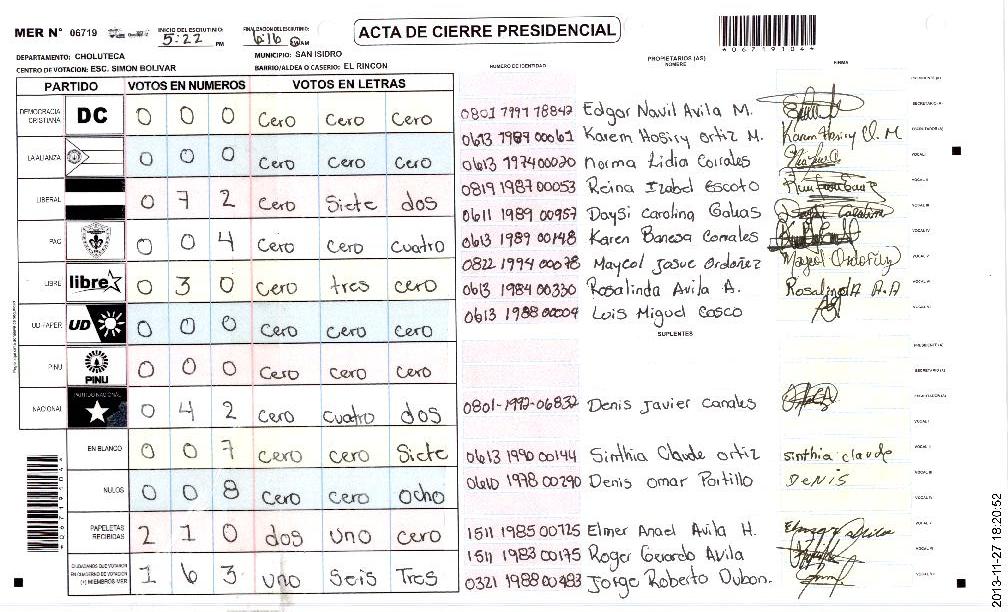 MER N° 06719
INICIO DEL ESCRUTINIO: 5:22 PM
FINALIZACION DEL ESCRUTINIO: 6:16 AM
ACTA DE CIERRE PRESIDENCIAL
*067191044*
DEPARTAMENTO: CHOLUTECA
MUNICIPIO: SAN ISIDRO
CENTRO DE VOTACION: ESC. SIMON BOLIVAR
BARRIO/ALDEA O CASERIO: EL RINCON
PARTIDO VOTOS EN NUMEROS VOTOS EN LETRAS
DEMOCRACIA CRISTIANA DC 0 0 0 Cero Cero Cero
LA ALIANZA 0 0 0 Cero Cero Cero
LIBERAL 0 7 2 Cero Siete dos
PAC 0 0 4 Cero Cero cuatro
LIBRE libre 0 3 0 Cero tres cero
UD-FAPER UD 0 0 0 Cero Cero Cero
PINU PINU 0 0 0 Cero Cero Cero
NACIONAL PARTIDO NACIONAL 0 4 2 Cero cuatro dos
EN BLANCO 0 0 7 Cero Cero Siete
NULOS 0 0 8 Cero Cero Ocho
PAPELETAS RECIBIDAS 2 1 0 dos uno cero
CIUDADANOS QUE VOTARON EN CUADERNO DE VOTACION (+) MIEMBROS MER 1 6 3 uno Seis Tres
NUMERO DE IDENTIDAD PROPIETARIOS (AS) NOMBRE FIRMA
PRESIDENTE (A)
0801 1991 18842 Edgar Navil Avila M. SECRETARIO (A)
0613 1989 00061 Karem Hosiry Ortiz M. Karem Hosiry O. M ESCRUTADOR (A)
0613 1974 00020 Norma Lidia Corrales VOCAL I
0819 1987 00053 Reina Izabel Escoto VOCAL II
0611 1989 00957 Daysi Carolina Galeas VOCAL III
0613 1989 00148 Karen Banesa Corrales VOCAL IV
0822 1994 00078 Maycol Josue Ordoñez Maycol Ordoñez VOCAL V
0613 1984 00330 Rosalinda Avila A. Rosalinda A.A VOCAL VI
0613 1988 00004 Lois Miguel Casco
SUPLENTES
PRESIDENTE (A)
SECRETARIO (A)
0801-1992-06832 Denis Javier Canales ESCRUTADOR (A)
VOCAL I
0613 1990 00144 Sinthia Claude ortiz sinthia claude VOCAL II
0610 1978 00290 Denis omar Portillo DENIS VOCAL III
VOCAL IV
1511 1985 00725 Elmer Anael Avila H. VOCAL V
1511 1983 00175 Roger Gerardo Avila VOCAL VI
0321 1988 00483 Jorge Roberto Dubon.
*067191044*
2013-11-27 18:20:52